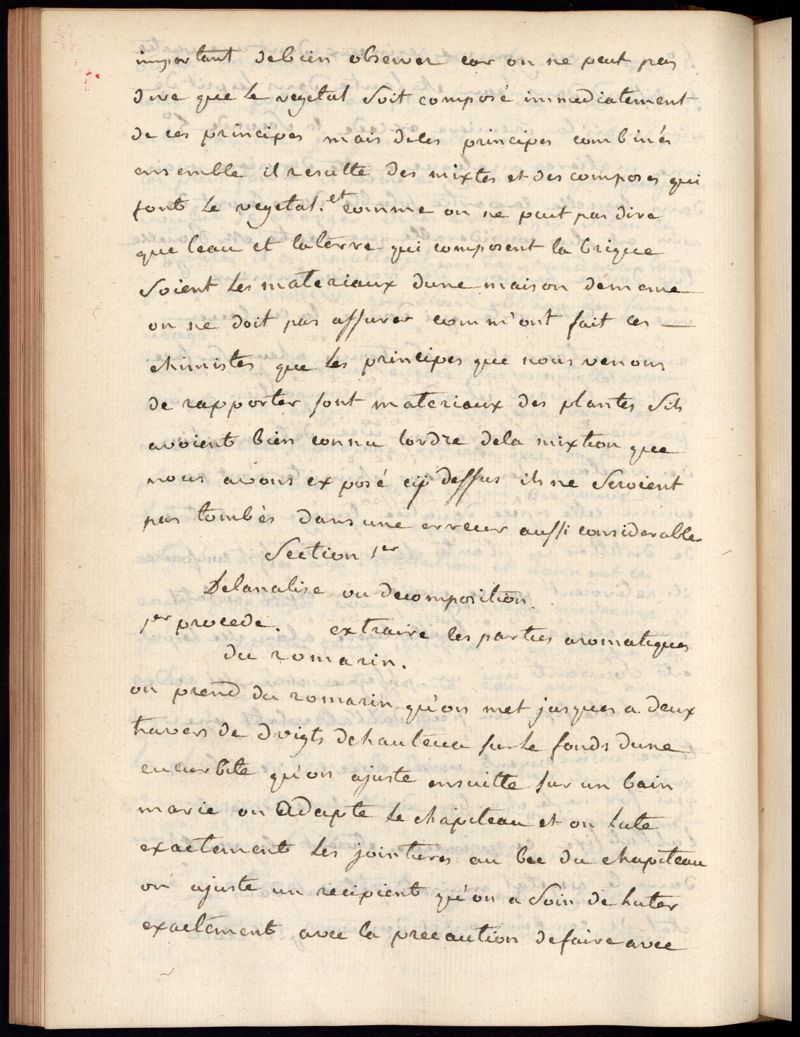 important debien observer car on ne peut pas
dire que le vegetal soit composé immediatement
de ces principes mais deces principes combinés
ensemble il resulte des mixtes et des composes qui
font le vegetal. et comme on ne peut pas dire
que leau et laterre qui composent la brique
soient les materiaux dune maison dememe
on ne doit pas assurer comm'ont fait ces
chimistes que les principes que nous venons
de rapporter sont materiaux des plantes sils
avoient bien connu lordre dela mixtion que
nous avons exposé cy dessus ils ne seroient
pas tombés dans une erreur aussi considerable
Section 1er
Delanalise ou decomposition
1er procede. extraire les parties aromatiques
du romarin.
on prend du romarin qu'on met jusques a deux
travers de doigts dehauteur sur le fonds dune
cucurbite qu'on ajuste ensuitte sur un bain
marie on adapte le chapiteau et on lute
exactement les jointures au bec du chapiteau
on ajuste un recipient qu'on a soin de luter
exactement avec la precaution defaire avec